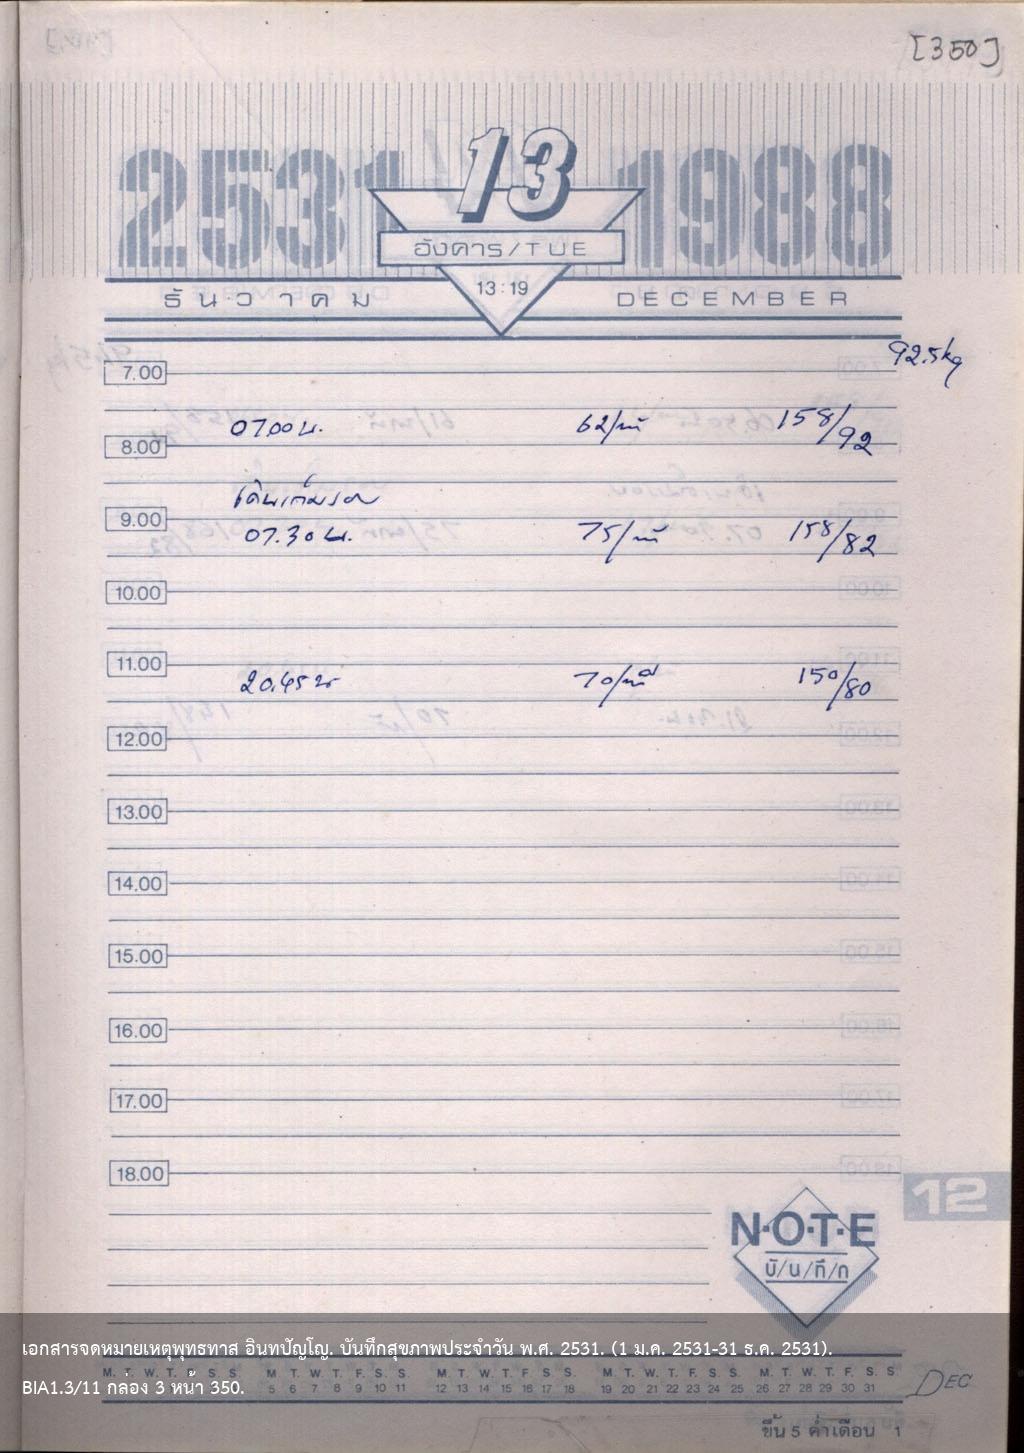 [350]
2531 13 1988
อังคาร/TUE
13:19
ธันวาคม DECEMBER
92.5kg
7.00
07.00 น. 62/นาที 158/92
8.00
เดินเต็มรอบ
9.00
07.30 น. 75/นาที 158/82
10.00
11.00
20.45 น 70/นาที 150/80
12.00
13.00
14.00
15.00
16.00
17.00
18.00
12
N·O·T·E
บั/น/ทึ/ก
เอกสารจดหมายเหตุพุทธทาส อินทปัญโญ. บันทึกสุขภาพประจำวัน พ.ศ. 2531. (1 ม.ค. 2531-31 ธ.ค. 2531).
M. T. W. T. F. S. S M. T. W. T. F. S. S. M. T. W. T. F. S. S. M. T. W. T. F. S. S. M. T. W. T. F. S. S
BIA1.3/11 กล่อง 3 หน้า 350. 5 6 7 8 9 10 11 12 13 14 15 16 17 18 19 20 21 22 23 24 25 26 27 28 29 30 31
DEC
ขึ้น 5 ค่ำเดือน 1